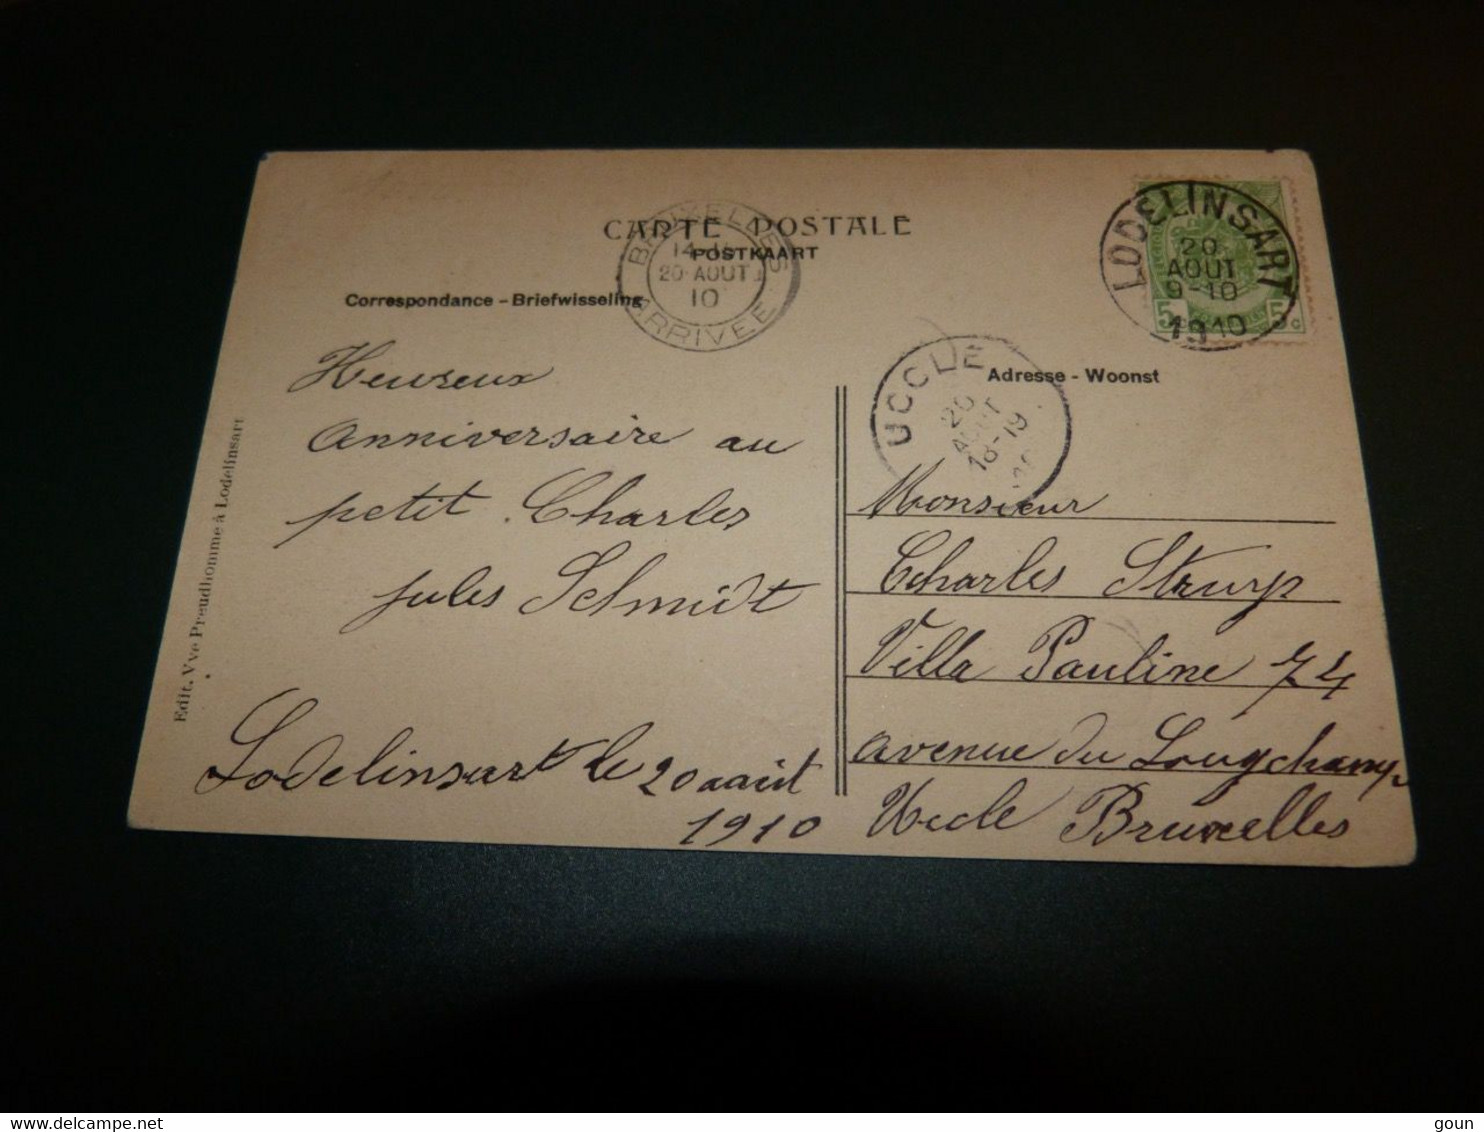 CARTE POSTALE
POSTKAART
Correspondance - Briefwisseling
BRUXELLES
14-15
20 AOUT
10
ARRIVEE
LODELINSART
20
AOUT
9-10
1910
5 5c
UCCLE
20
AOUT
18-19
Adresse - Woonst
Heureux
anniversaire au
petit Charles
jules Schmidt
Lodelinsart le 20 août
1910
Monsieur
Charles Struyp
Villa Pauline 74
avenue du Longchamp
Uccle Bruxelles
Edit. Vve Preudhomme à Lodelinsart
goun